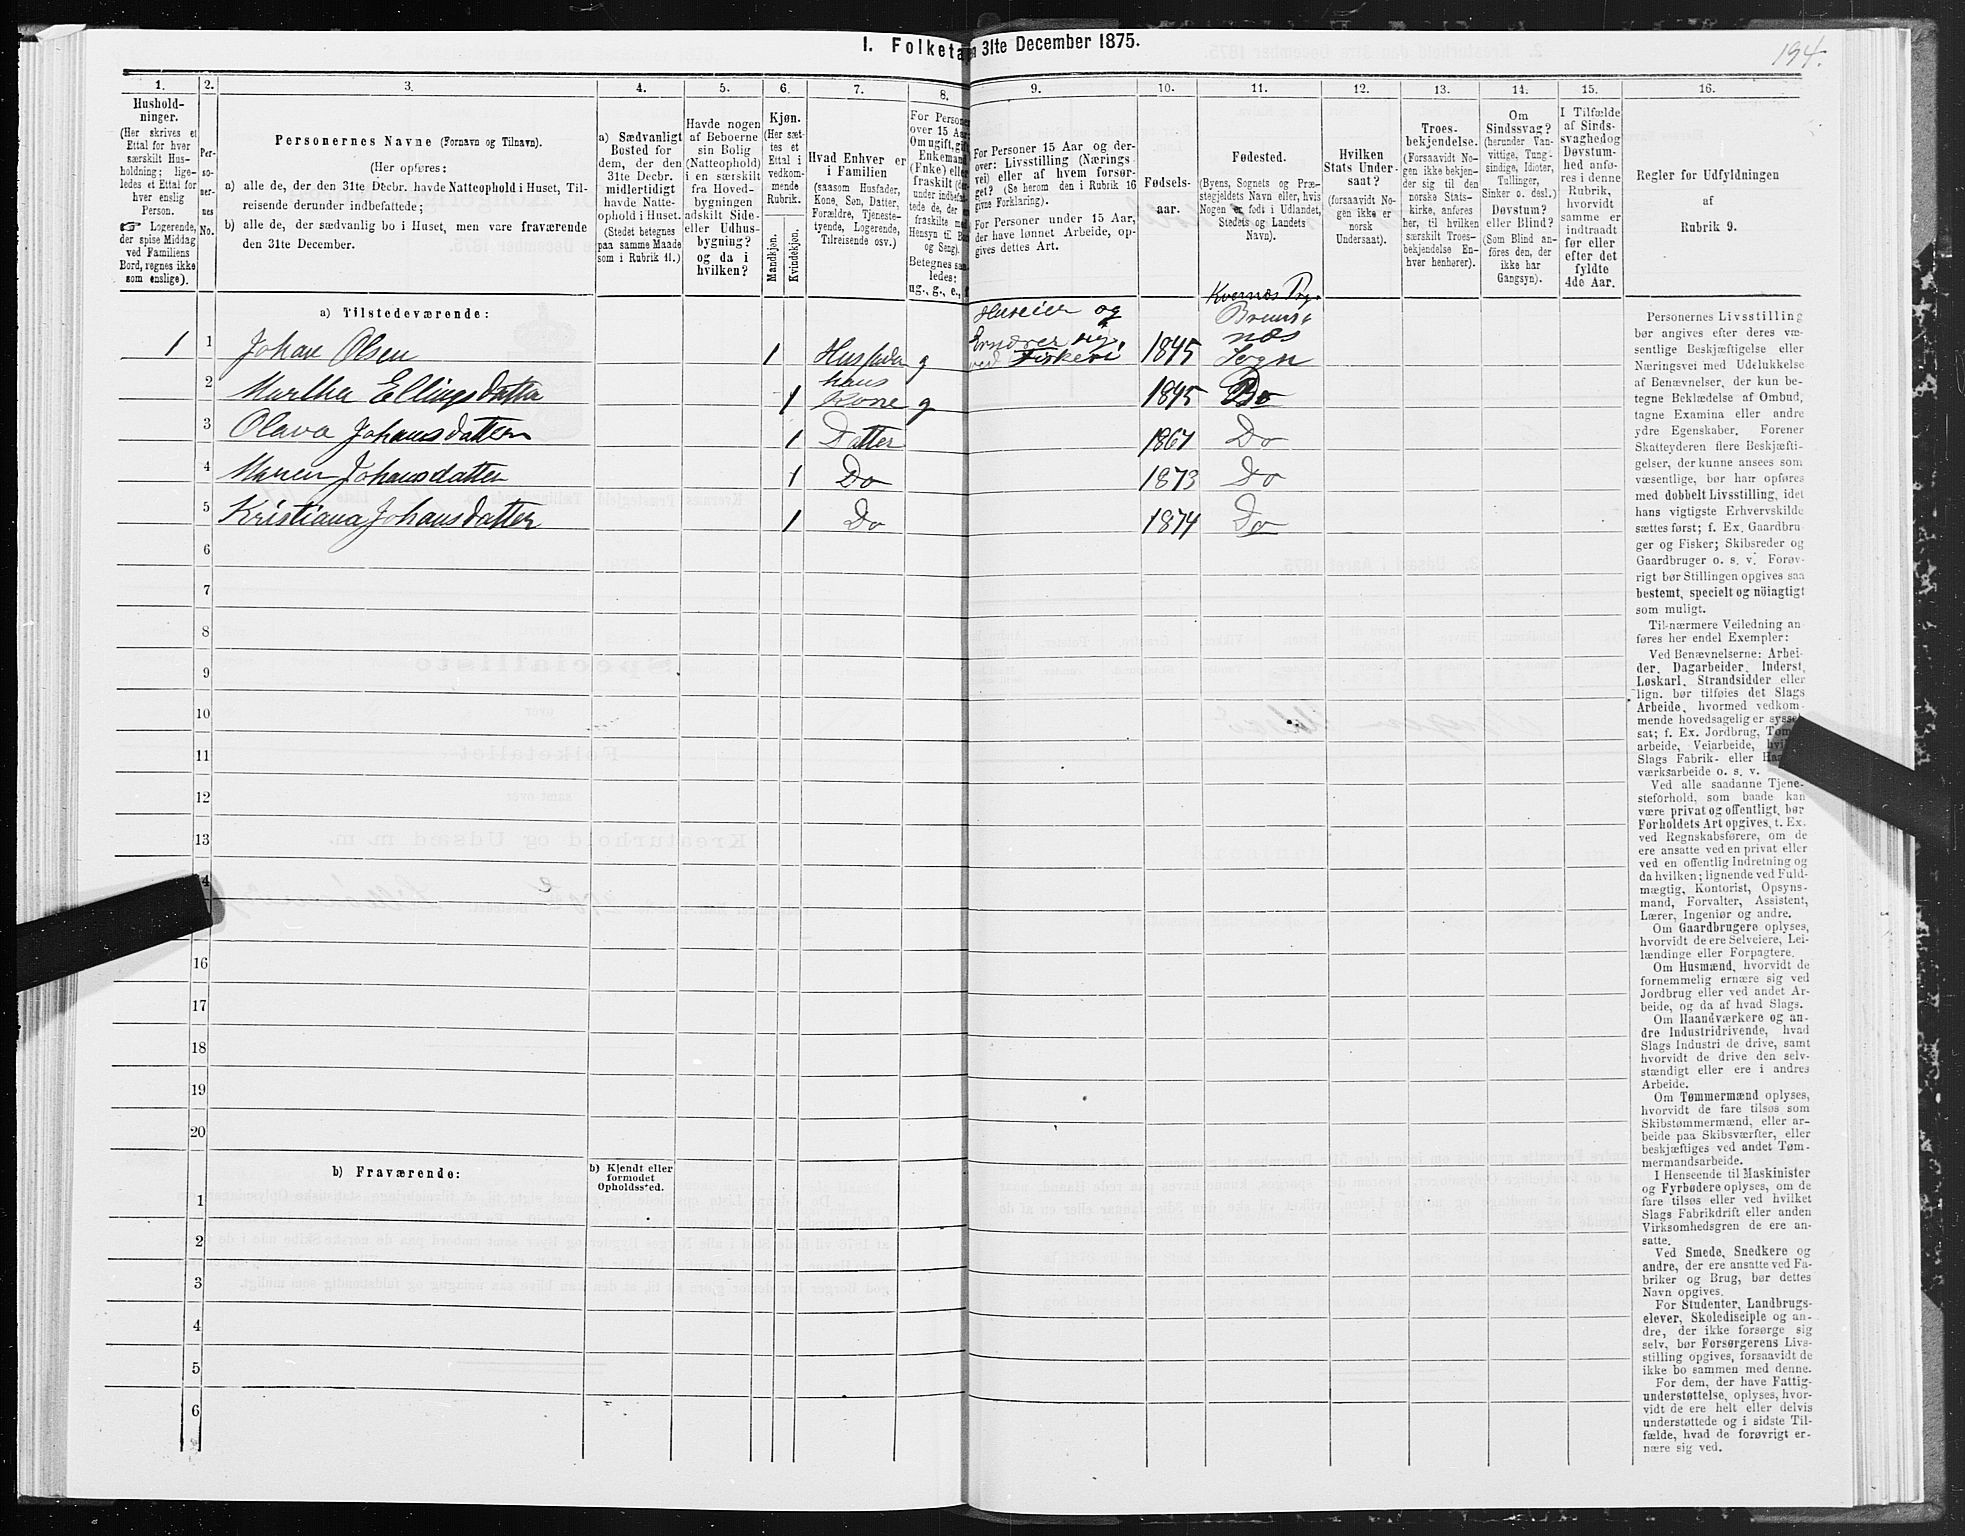 194.
1. Folketa 31te December 1875.
1. 2. 3. 4. 5. 6. 7. 8. 9. 10. 11. 12. 13. 14. 15. 16.
Hushold-
ninger.
(Her skrives et
Ettal for hver
særskilt Hus-
holdning; lige-
ledes et Ettal for
hver enslig
Person.
Logerende,
der spise Middag
ved Familiens
Bord, regnes ikke
som enslige).
Per-
so-
ner-
nes
No.
Personernes Navne (Fornavn og Tilnavn).
(Her opføres:
a) alle de, der den 31te Decbr. havde Natteophold i Huset, Til-
reisende derunder indbefattede;
b) alle de, der sædvanlig bo i Huset, men vare fraværende
den 31te December.
a) Sædvanligt
Bosted for
dem, der den
31te Decbr.
midlertidigt
havde Natte-
ophold i Huset.
(Stedet betegnes
paa samme Maade
som i Rubrik 11.)
Havde nogen
af Beboerne
sin Bolig
(Natteophold)
i en særskilt
fra Hoved-
bygningen
adskilt Side-
eller Udhus-
bygning?
og da i
hvilken?
Kjøn.
(Her sæt-
tes et
Ettal i
vedkom-
mende
Rubrik.
Mandkjøn.
Kvindekjøn.
Hvad Enhver er
i Familien
(saasom Husfader,
Kone, Søn, Datter,
Forældre, Tjeneste-
tyende, Logerende,
Tilreisende osv.)
For Persone
over 15 Aar
Om ugift, gift
Enkemand
(Enke) eller
fraskilt (der-
under indbefat-
tede de, der er
fraskilte med
Hensyn til Bord
og Seng).
Betegnes saa-
ledes:
ug., g., e., f
For Personer 15 Aar og der-
over: Livsstilling (Nærings-
vei) eller af hvem forsør-
get? (Se herom den i Rubrik 16
givne Forklaring).
For Personer under 15 Aar,
der have lønnet Arbeide, op-
gives dettes Art.
Fødsels-
aar.
Fødested.
(Byens, Sognets og Præ-
stegjeldets Navn eller, hvis
Nogen er født i Udlandet,
Stedets og Landets
Navn).
Hvilken
Stats Under-
saat?
(forsaavidt No-
gen ikke er
norsk
Undersaat).
Troes-
bekjendelse.
(Forsaavidt No-
gen ikke bekjen-
der sig til den
norske Stats-
kirke, anføres
her, til hvilken
særskilt Troes-
bekjendelse En-
hver henhører).
Om
Sindssvag?
(herunder Van-
vittige, Tung-
sindige, Idioter,
Tullinger,
Sinker o. desl.)
Døvstum?
eller Blind?
(Som Blind an-
føres den, der
ikke har
Gangsyn).
I Tilfælde
af Sinds-
svaghed og
Døvstum-
hed anfø-
res i denne
Rubrik,
hvorvidt
samme er
indtraadt
før eller
efter det
fyldte
4de Aar.
Regler for Udfyldningen
af
Rubrik 9.
a) Tilstedeværende:
1 1 Johan Olsen 1 Husfader g Huseier og Ernærer sig ved Fiskeri 1845 Kvernæs Prg. Bremsnæs Sogn
2 Martha Ellingsdatter 1 hans Kone g 1845 Do
3 Olava Johansdatter 1 Datter 1867 Do
4 Maren Johansdatter 1 Do 1873 Do
5 Kristiana Johansdatter 1 Do 1874 Do
6
7
8
9
10
11
12
13
4
16
17
18
19
20
b) Fraværende:
b) Kjendt eller
formodet
Opholdssted.
1
2
3
4
5
6
Personernes Livsstilling
bør angives efter deres væ-
sentlige Beskjæftigelse eller
Næringsvei med Udelukkelse
af Benævnelser, der kun be-
tegne Beklædelse af Ombud,
tagne Examina eller andre
ydre Egenskaber. Forener
Skatteyderen flere Beskjæfti-
gelser, der kunne ansees som
væsentlige, bør han opføres
med dobbelt Livsstilling, idet
hans vigtigste Erhvervskilde
sættes først; f. Ex. Gaardbru-
ger og Fisker; Skibsreder og
Gaardbruger o. s. v. Forøv-
rigt bør Stillingen opgives saa
bestemt, specielt og nöiagtigt
som muligt.
Til nærmere Veiledning an-
føres her endel Exempler:
Ved Benævnelserne: Arbei-
der, Dagarbeider, Inderst,
Løskarl, Strandsidder eller
lign. bør tilføies det Slags
Arbeide, hvormed vedkom-
mende hovedsagelig er syssel-
sat; f. Ex. Jordbrug, Tøm
arbeide, Veiarbeide, hvi
Slags Fabrik- eller Ha
værksarbeide o. s. v.
Ved alle saadanne Tjene-
steforhold, som baade kan
være privat og offentligt, bør
Forholdets Art opgives, t. Ex.
ved Regnskabsførere, om de
ere ansatte ved en privat eller
ved en offentlig Indretning og
da hvilken; lignende ved Fuld-
mægtig, Kontorist, Opsyns-
mand, Forvalter, Assistent,
Lærer, Ingeniør og andre.
Om Gaardbrugere oplyses,
hvorvidt de ere Selveiere, Lei-
lændinge eller Forpagtere.
Om Husmænd, hvorvidt de
fornemmelig ernære sig ved
Jordbrug eller ved andet Ar-
beide, og da af hvad Slags.
Om Haandværkere og an-
dre Industridrivende, hvad
Slags Industri de drive, samt
hvorvidt de drive den selv-
stændigt eller ere i andres
Arbeide.
Om Tømmermænd oplyses,
hvorvidt de fare tilsøs som
Skibstømmermænd, eller ar-
beide paa Skibsværfter, eller
beskjæftiges ved andet Tøm-
mermandsarbeide.
I Henseende til Maskinister
og Fyrbødere oplyses, om de
fare tilsøs eller ved hvilket
Slags Fabrikdrift eller anden
Virksomhedsgren de ere an-
satte.
Ved Smede, Snedkere og
andre, der ere ansatte ved Fa-
briker og Brug, bør dettes
Navn opgives.
For Studenter, Landbrugs-
elever, Skoledisciple og an-
dre, der ikke forsørge sig
selv, bør Forsørgerens Livs-
stilling opgives, forsaavidt de
ikke bo sammen med denne.
For dem, der have Fattig-
understøttelse, oplyses, hvor-
vidt de ere helt eller delvis
understøttede og i sidste Til-
fælde, hvad de forøvrigt er-
nære sig ved.